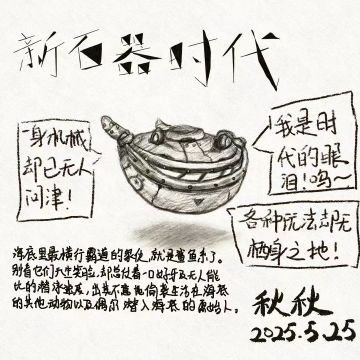 新石器时代
一身机械
却已无人
问津！
我是时
代的眼
泪！呜～
各种玩法却无
栖身之地！
海底里最横行霸道的家伙，就是鲨鱼来了。
别看它们天生笨脸，却总仗着一口好牙及无人能
比的游泳速度，出其不意地偷袭生活在海底
的其他动物以及偶尔潜入海底的原始人。
秋秋
2025.5.25